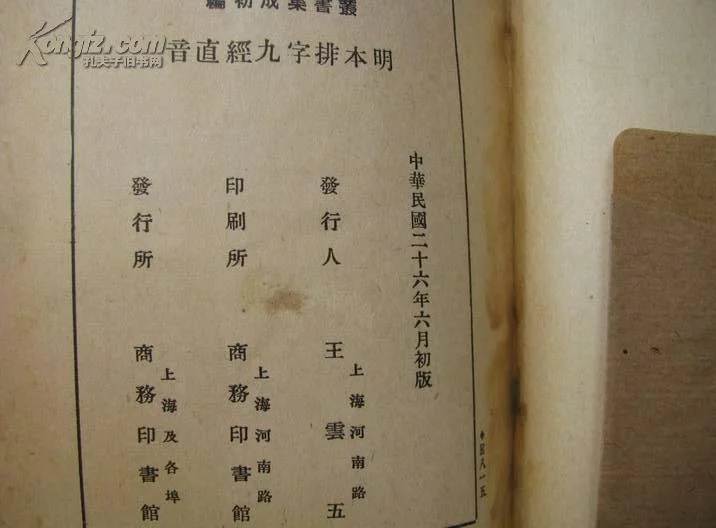 叢書集成初編
明本排字九經直音
中華民國二十六年六月初版
發行人 王雲五
上海河南路
印刷所 商務印書館
上海河南路
發行所 商務印書館
上海及各埠
Kongfz.com
孔夫子旧书网